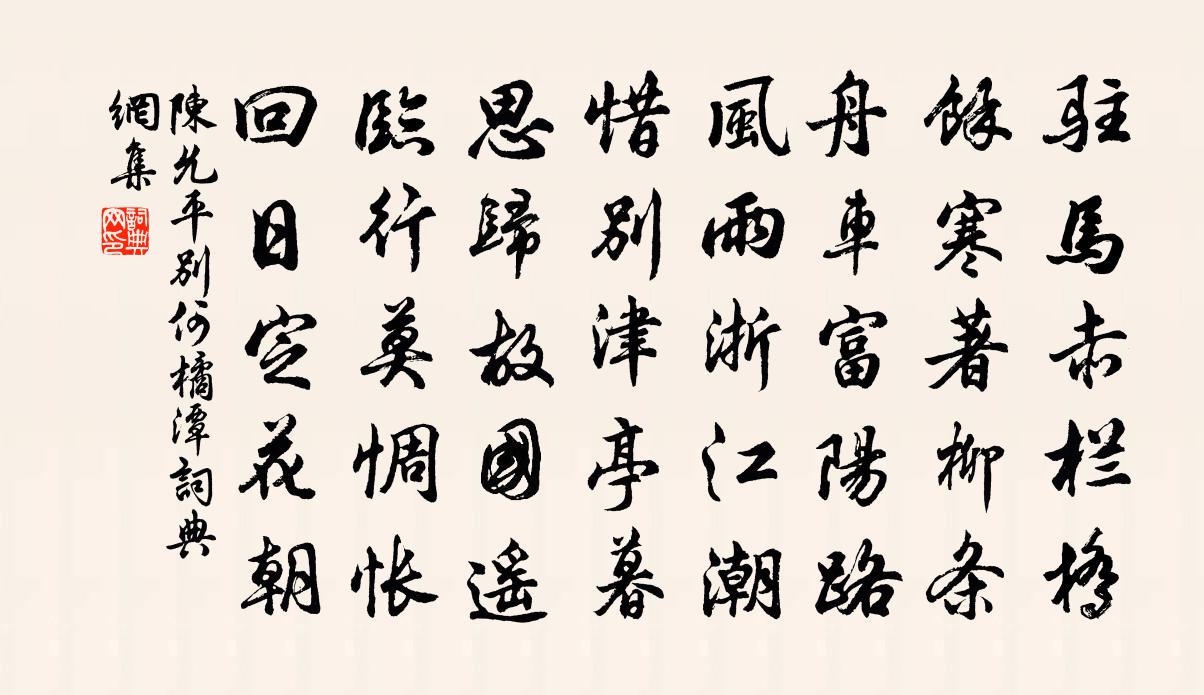 駐馬赤栏橋
餘寒著柳条
舟車富陽路
風雨浙江潮
惜别津亭暮
思歸故國遥
臨行莫惆怅
回日定花朝
陳允平别何橘潭詞典
網集
詞典网印